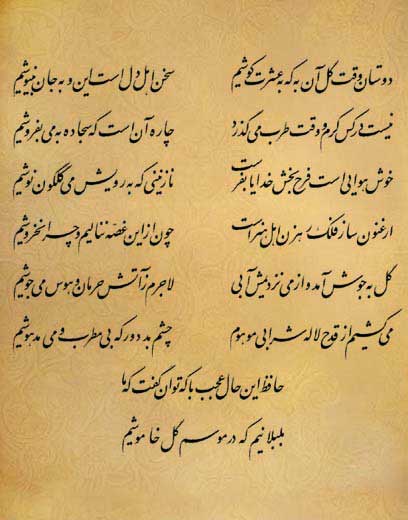 دوستان وقت گل آن به که به عشرت کوشیم سخن اهل دل است این و به جان بنیوشیم
نیست در کس کرم و وقت طرب می‌گذرد چاره آن است که سجاده به می بفروشیم
خوش هوایی است فرح بخش خدایا بفرست نازنینی که به رویش می گلگون نوشیم
ارغنون ساز فلک رهزن اهل هنر است چون از این غصه ننالیم و چرا نخروشیم
گل به جوش آمد و از می نزدیمش آبی لاجرم ز آتش حرمان و هوس می‌جوشیم
می‌کشیم از قدح لاله شرابی موهوم چشم بد دور که بی مطرب و می مدهوشیم
حافظ این حال عجب با که توان گفت که ما
بلبلانیم که در موسم گل خاموشیم